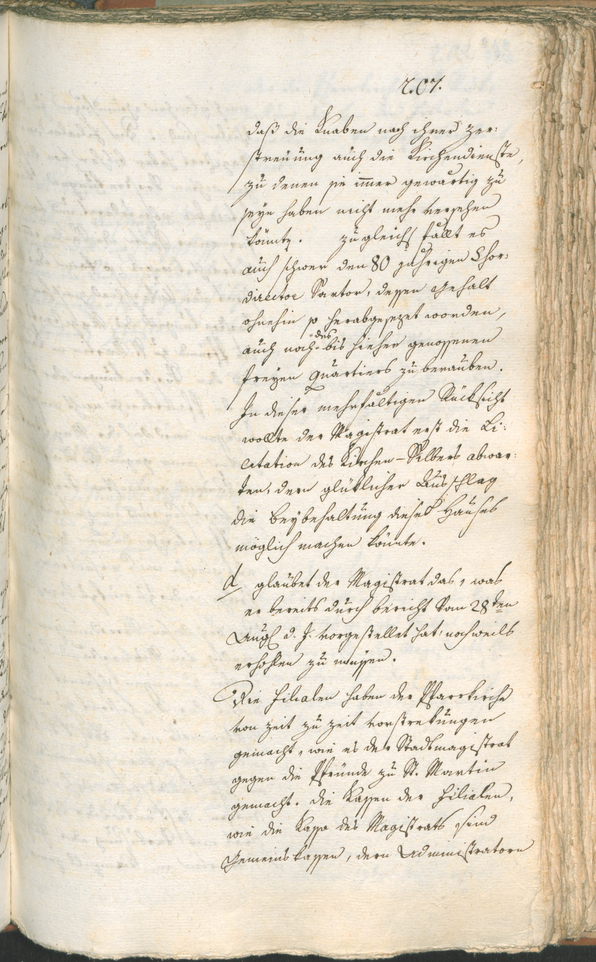 207.
daß die Knaben nach ihrer zer-
streuung auch die Kirchendienste,
zu denen sie immer gewärtig zu
seyn haben nicht mehr versehen
könnte. zugleich fällt es
auch schwer den 80 jährigen Chor-
director Santor, dessen Gehalt
ohnehin so herabgesezet worden,
auch noch des bis hieher genossenen
freyen Quartiers zu berauben.
In dieser mehrfältigen Rücksicht
wollte der Magistrat erst die Li-
citation des Kirchen-Silbers abwar-
ten, deren glüklicher Ausschlag
die Beybehaltung dieses Hauses
möglich machen könnte.
d glaubet der Magistrat das, was
er bereits durch bericht vom 28ten
Augl d. J. vorgestellet hat nochmals
erhohlen zu müssen.
Die Filialen haben der Pfarrkirche
von zeit zu zeit vorstrekungen
gemacht, wie es der Stadtmagistrat
gegen die Pfründe zu St. Martin
gemacht. die Kassen der Filialen,
wie die Kassa des Magistrats sind
Gemeinskassen, deren Administratorn